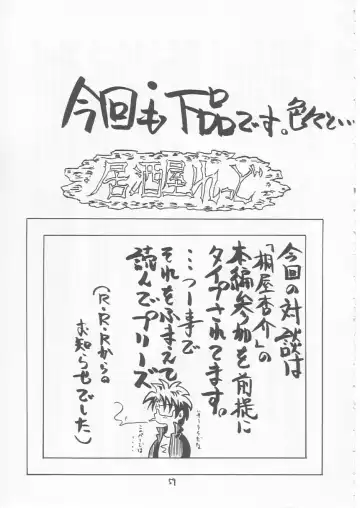 今回も下品です。色々と…
居酒屋れっど
今回の対談は
「桐屋杏介」の
本編参加を前提に
タイプされてます。
…つー事で
それをふまえて
読んでプリーズ
(R・R・Rからの
お知らせでした)
57